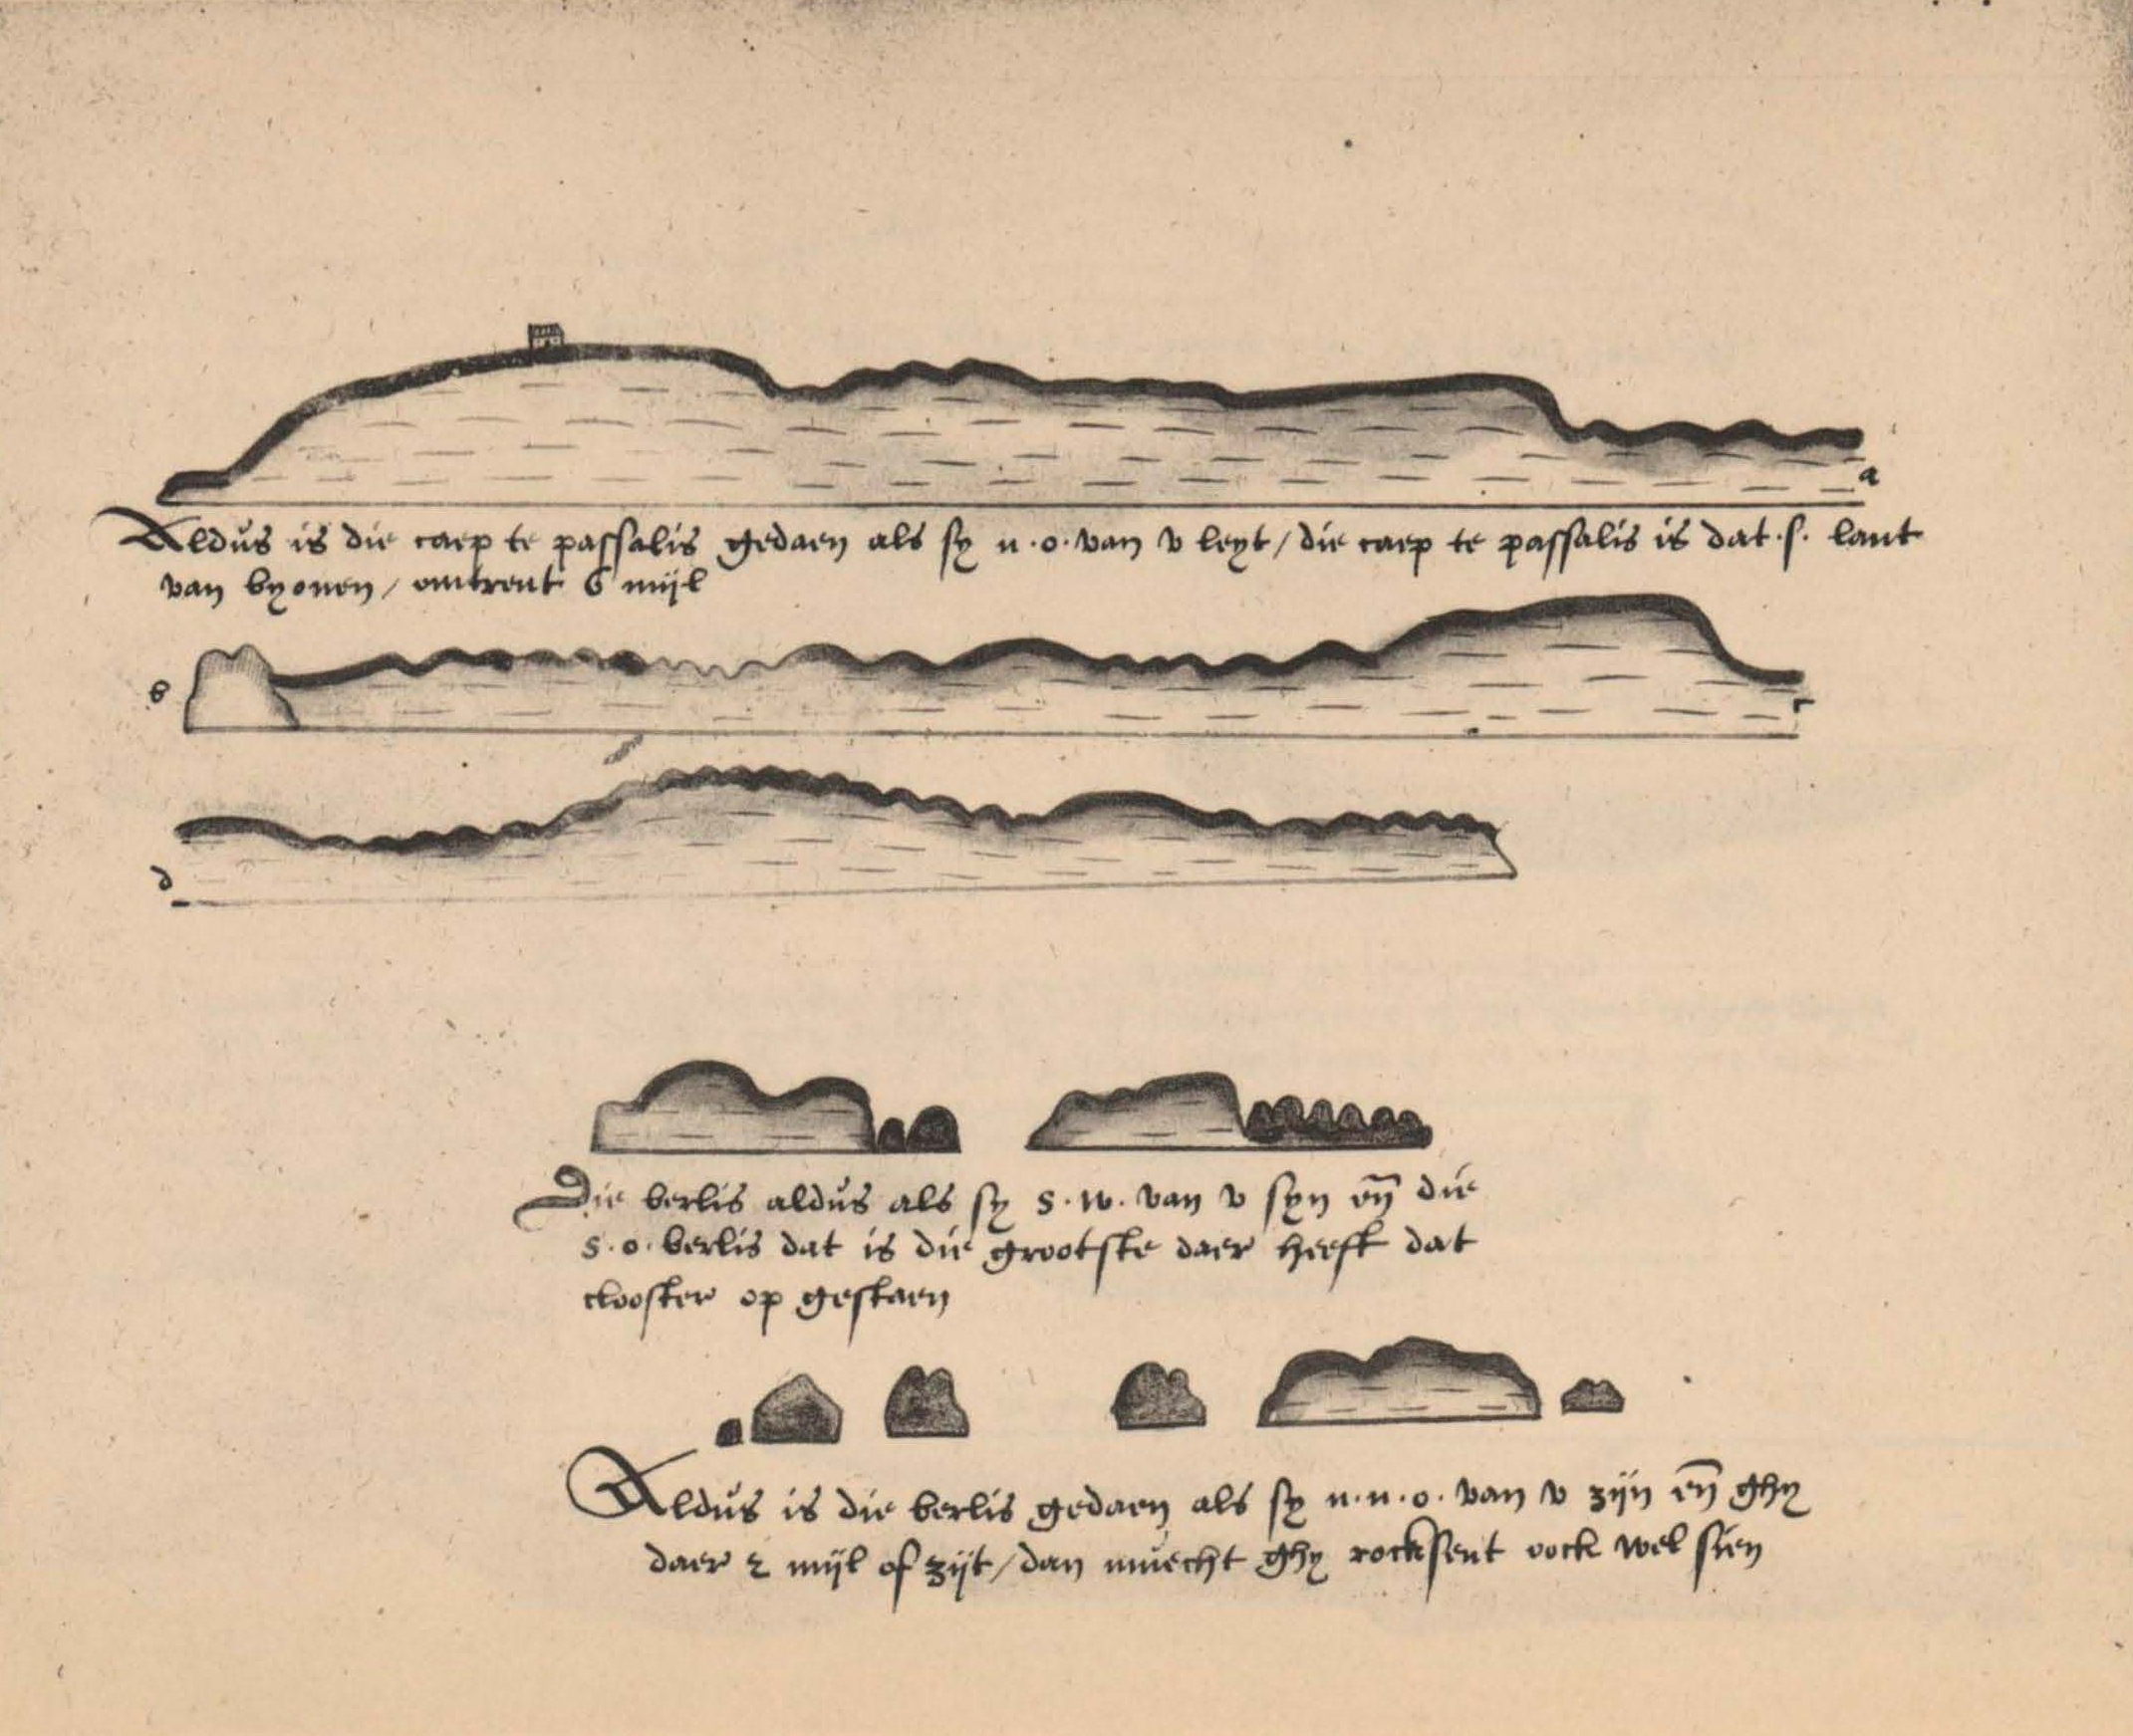 a
Aldus is die caep te passalis gedaen als sy n.o. van v leyt / die caep te passalis is dat .s. lant
van byonen / omtrent 6 mijl
b
c
d
Die berlis aldus als sy s.w. van v syn en̄ die
s.o. berlis dat is die grootste daer heeft dat
clooster op gestaen
Aldus is die berlis gedaen als sy n.n.o. van v zijn en̄ ghy
daer 2 mijl of zijt / dan muecht ghy rocksent oock wel sien